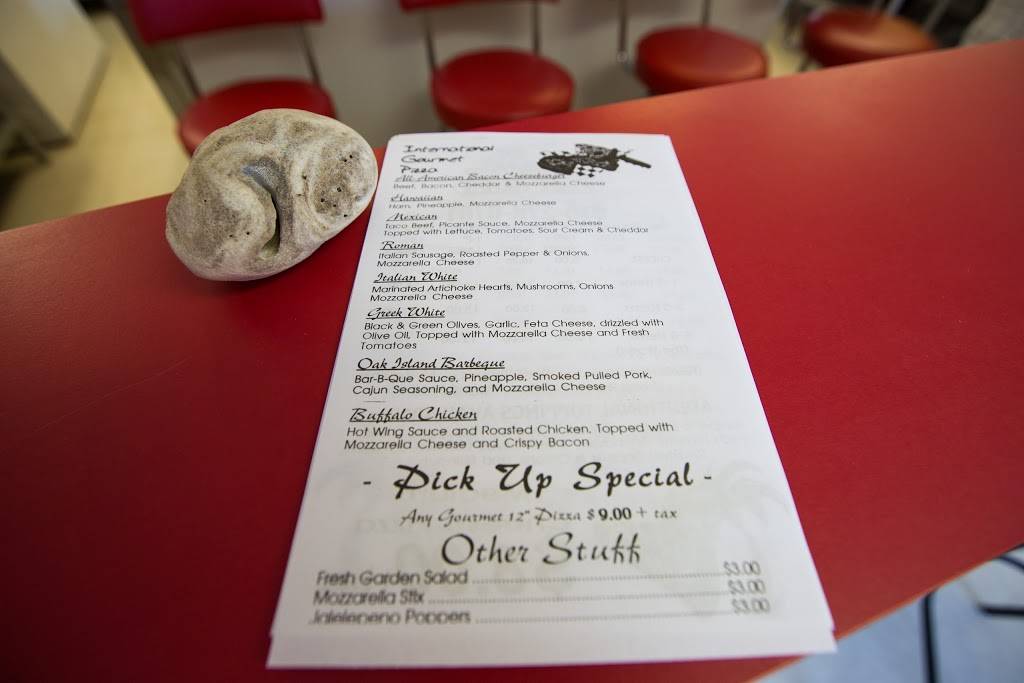 International
Gourmet
Pizza
All American Bacon Cheeseburger
Beef, Bacon, Cheddar & Mozzarella Cheese
Hawaiian
Ham, Pineapple, Mozzarella Cheese
Mexican
Taco Beef, Picante Sauce, Mozzarella Cheese
Topped with Lettuce, Tomatoes, Sour Cream & Cheddar
Roman
Italian Sausage, Roasted Pepper & Onions,
Mozzarella Cheese
Italian White
Marinated Artichoke Hearts, Mushrooms, Onions
Mozzarella Cheese
Greek White
Black & Green Olives, Garlic, Feta Cheese, drizzled with
Olive Oil, Topped with Mozzarella Cheese and Fresh
Tomatoes
Oak Island Barbeque
Bar-B-Que Sauce, Pineapple, Smoked Pulled Pork,
Cajun Seasoning, and Mozzarella Cheese
Buffalo Chicken
Hot Wing Sauce and Roasted Chicken, Topped with
Mozzarella Cheese and Crispy Bacon
- Pick Up Special -
Any Gourmet 12" Pizza $9.00 + tax
Other Stuff
Fresh Garden Salad ........ $3.00
Mozzarella Stix ........ $3.00
Jalelepeno Poppers ........ $3.00